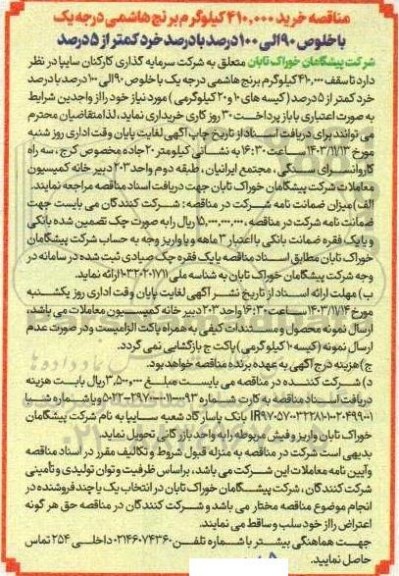 مناقصه خرید ۴۱۰,۰۰۰ کیلوگرم برنج هاشمی درجه یک
با خلوص ۹۰ الی ۱۰۰ درصد با درصد خرد کمتر از ۵ درصد
شرکت پیشگامان خوراک تابان متعلق به شرکت سرمایه گذاری کارکنان سایپا در نظر
دارد تا سقف ۴۱۰,۰۰۰ کیلوگرم برنج هاشمی درجه یک با خلوص ۹۰ الی ۱۰۰ درصد با درصد
خرد کمتر از ۵ درصد ( کیسه های ۱۰ و ۲۰ کیلوگرمی ) مورد نیاز خود را از واجدین شرایط
به صورت اعتباری با باز پرداخت ۳۰ روز کاری خریداری نماید، لذا متقاضیان محترم
می توانند برای دریافت اسناد از تاریخ چاپ آگهی لغایت پایان وقت اداری روز شنبه
مورخ ۱۴۰۳/۱۱/۱۳ ساعت ۱۶:۳۰ به نشانی کیلومتر ۲۰ جاده مخصوص کرج، سه راه
کاروانسرای سنگی ، مجتمع ایرانیان ، طبقه دوم واحد ۲۰۳ دبیر خانه کمیسیون
معاملات شرکت پیشگامان خوراک تابان جهت دریافت اسناد مناقصه مراجعه نمایند.
الف) میزان ضمانت نامه شرکت در مناقصه : شرکت کنندگان می بایست جهت
ضمانت نامه شرکت در مناقصه ، ۱۵,۰۰۰,۰۰۰,۰۰۰ ریال را به صورت چک تضمین شده بانکی
و یا یک فقره ضمانت بانکی با اعتبار ۳ ماهه و یا واریز وجه به حساب شرکت پیشگامان
خوراک تابان مطابق اسناد مناقصه یا یک فقره چک صیادی ثبت شده در سامانه در
وجه شرکت پیشگامان خوراک تابان به شناسه ملی ۱۰۳۲۰۲۰۱۷۱۱ ارائه نماید.
ب) مهلت ارائه اسناد از تاریخ نشر آگهی لغایت پایان وقت اداری روز یکشنبه
مورخ ۱۴۰۳/۱۱/۱۴ ساعت ۱۶:۳۰ واحد ۲۰۳ دبیر خانه کمیسیون معاملات می باشد،
ارسال نمونه محصول و مستندات کیفی به همراه پاکت الزامیست و در صورت عدم
ارسال نمونه (کیسه ۱۰ کیلوگرمی) پاکت ج بازگشایی نمی گردد.
ج) هزینه درج آگهی به عهده برنده مناقصه خواهد بود.
د) شرکت کننده در مناقصه می بایست مبلغ ۳,۵۰۰,۰۰۰ ریال بابت هزینه
دریافت اسناد مناقصه به کارت شماره
بانک پاسارگاد شعبه سایپا به نام شرکت پیشگامان
خوراک تابان واریز و فیش مربوطه را به واحد بازرگانی تحویل نماید.
بدیهی است شرکت در مناقصه به منزله قبول شروط و تکالیف مقرر در اسناد مناقصه
و آیین نامه معاملات این شرکت می باشد، بر اساس ظرفیت و توان تولیدی و تأمینی
شرکت کنندگان ، شرکت پیشگامان خوراک تابان در انتخاب یک یا چند فروشنده در
انجام موضوع مناقصه مختار می باشد و شرکت کنندگان در مناقصه حق هر گونه
اعتراض را از خود سلب و ساقط می نمایند.
جهت هماهنگی بیشتر با شماره تلفن ۰۲۱۴۶۰۷۴۳۶۰ داخلی ۲۵۴ تماس
حاصل نمایید.